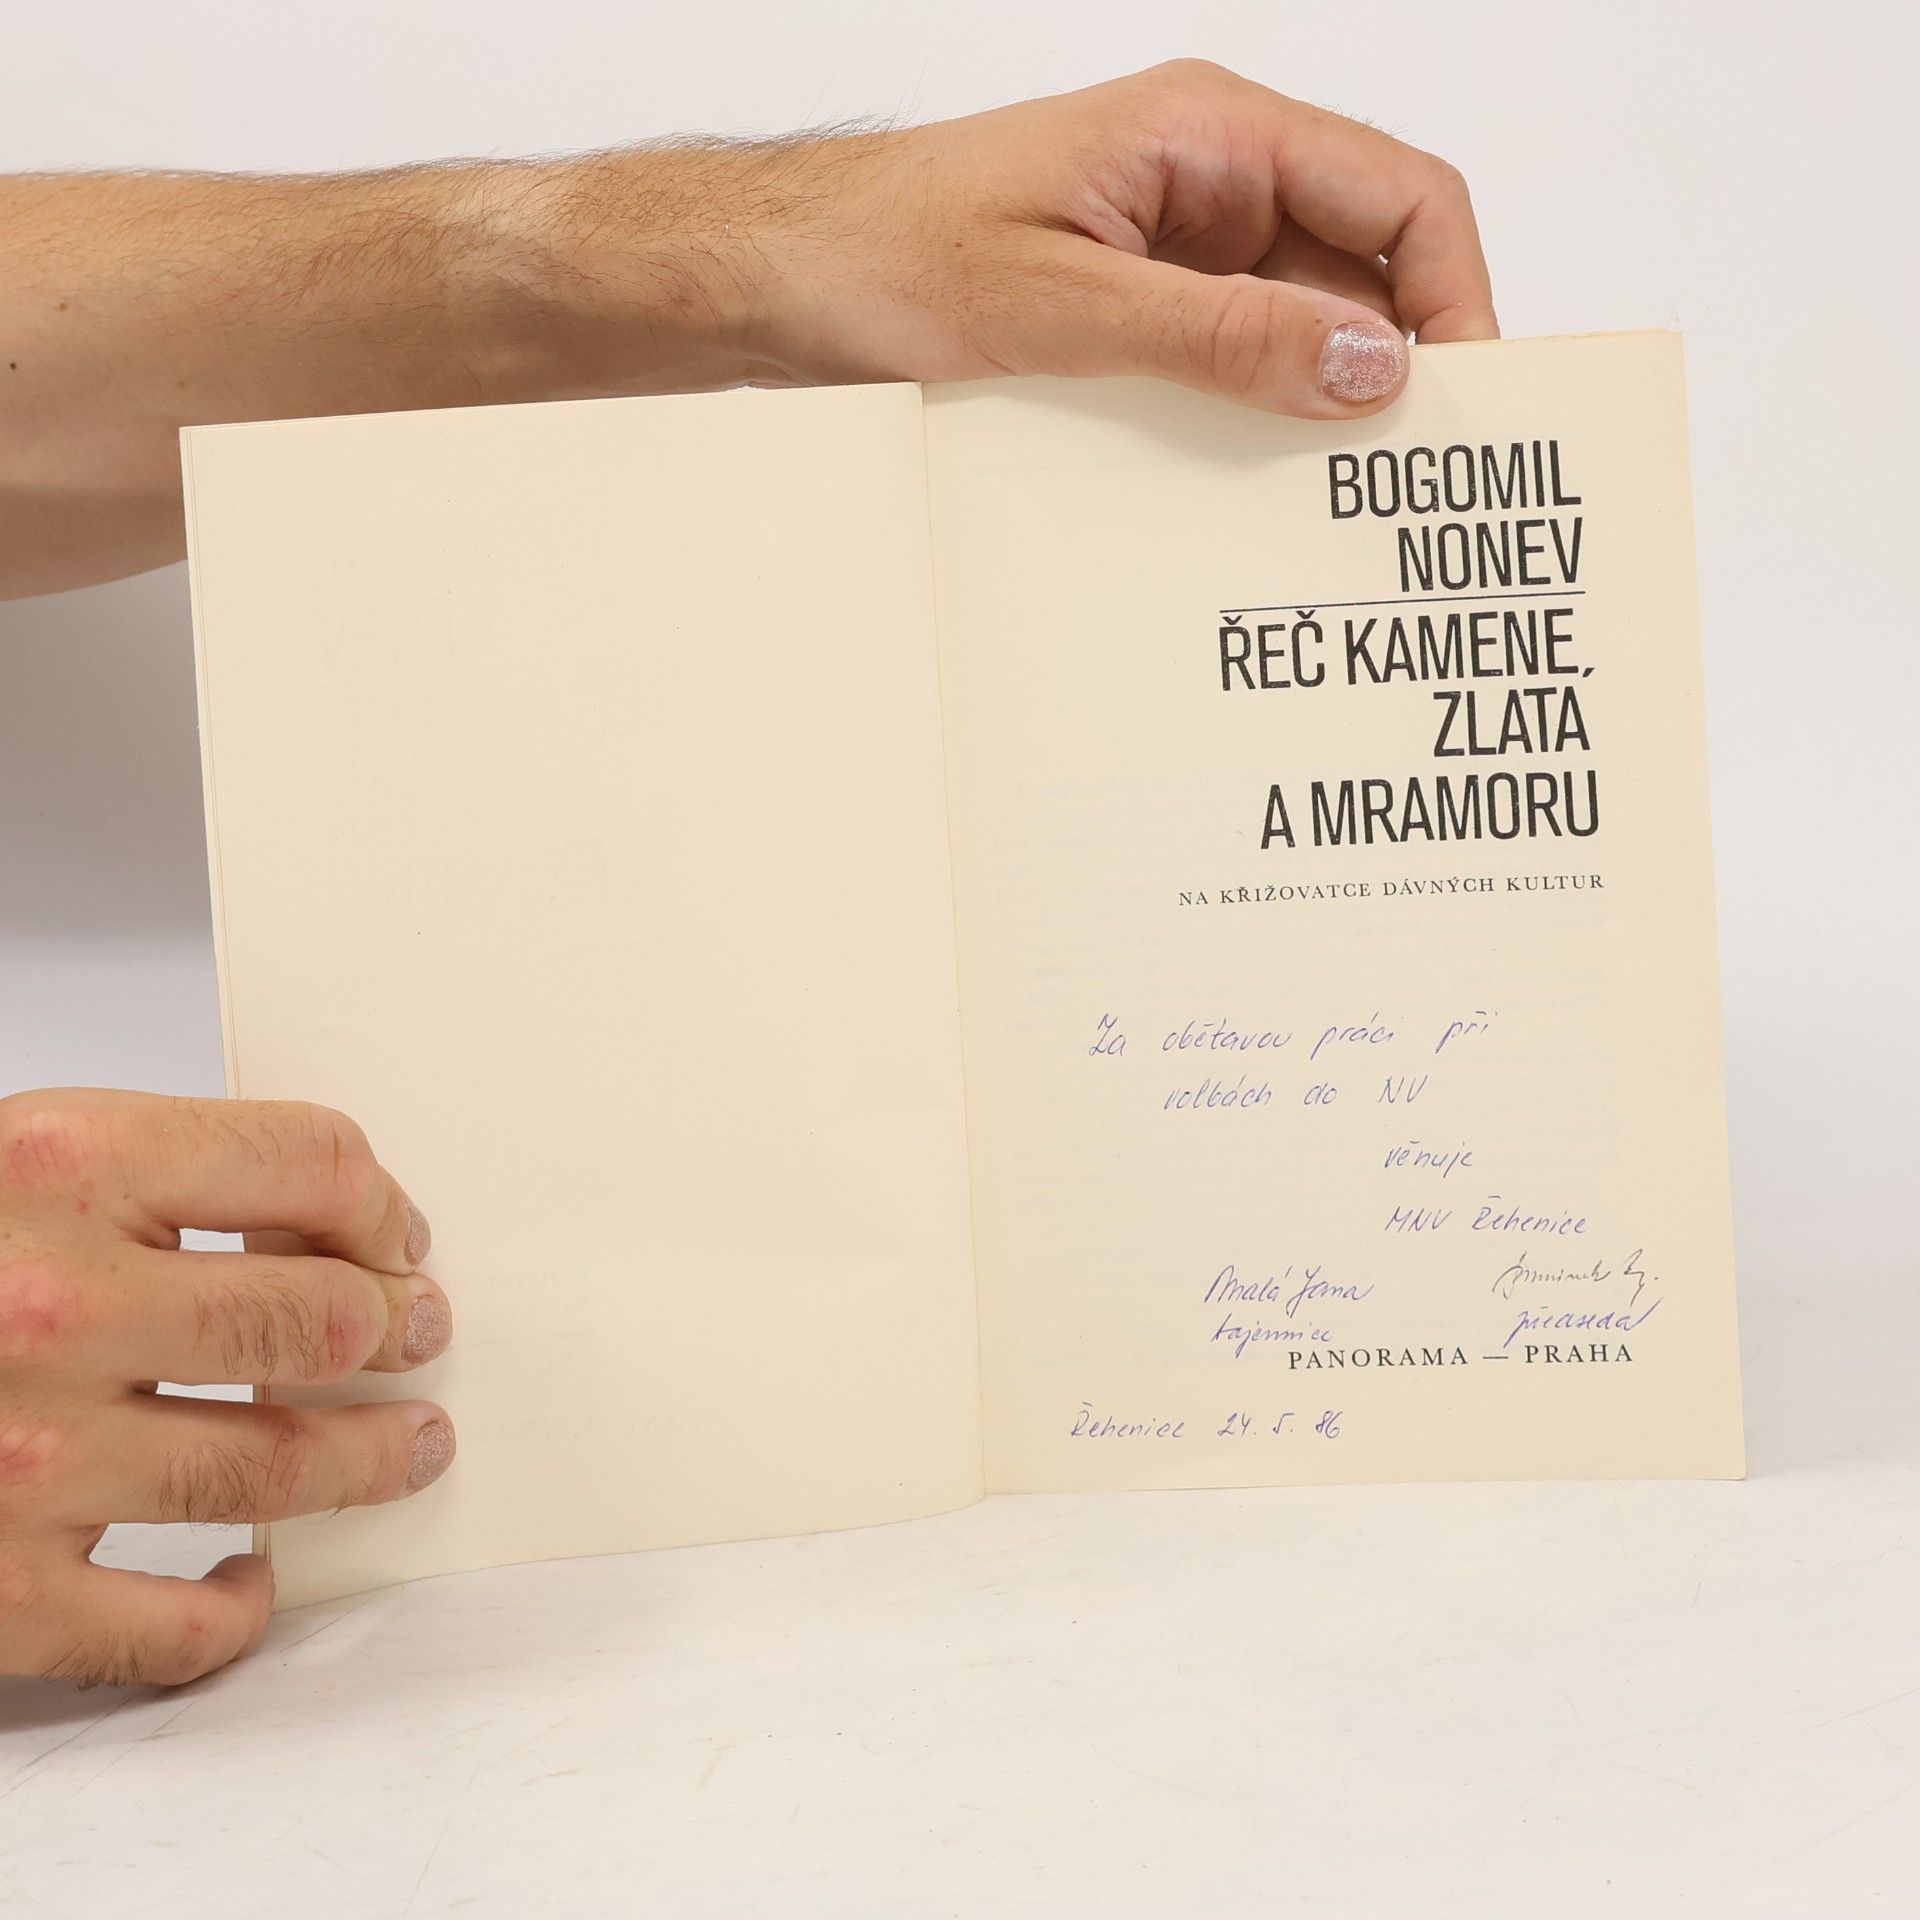 BOGOMIL
NONEV
ŘEČ KAMENE,
ZLATA
A MRAMORU
NA KŘIŽOVATCE DÁVNÝCH KULTUR
Za obětavou práci při
volbách do NV
věnuje
MNV Řehenice
Malá Jana
tajemnice předseda
PANORAMA — PRAHA
Řehenice 24. 5. 86